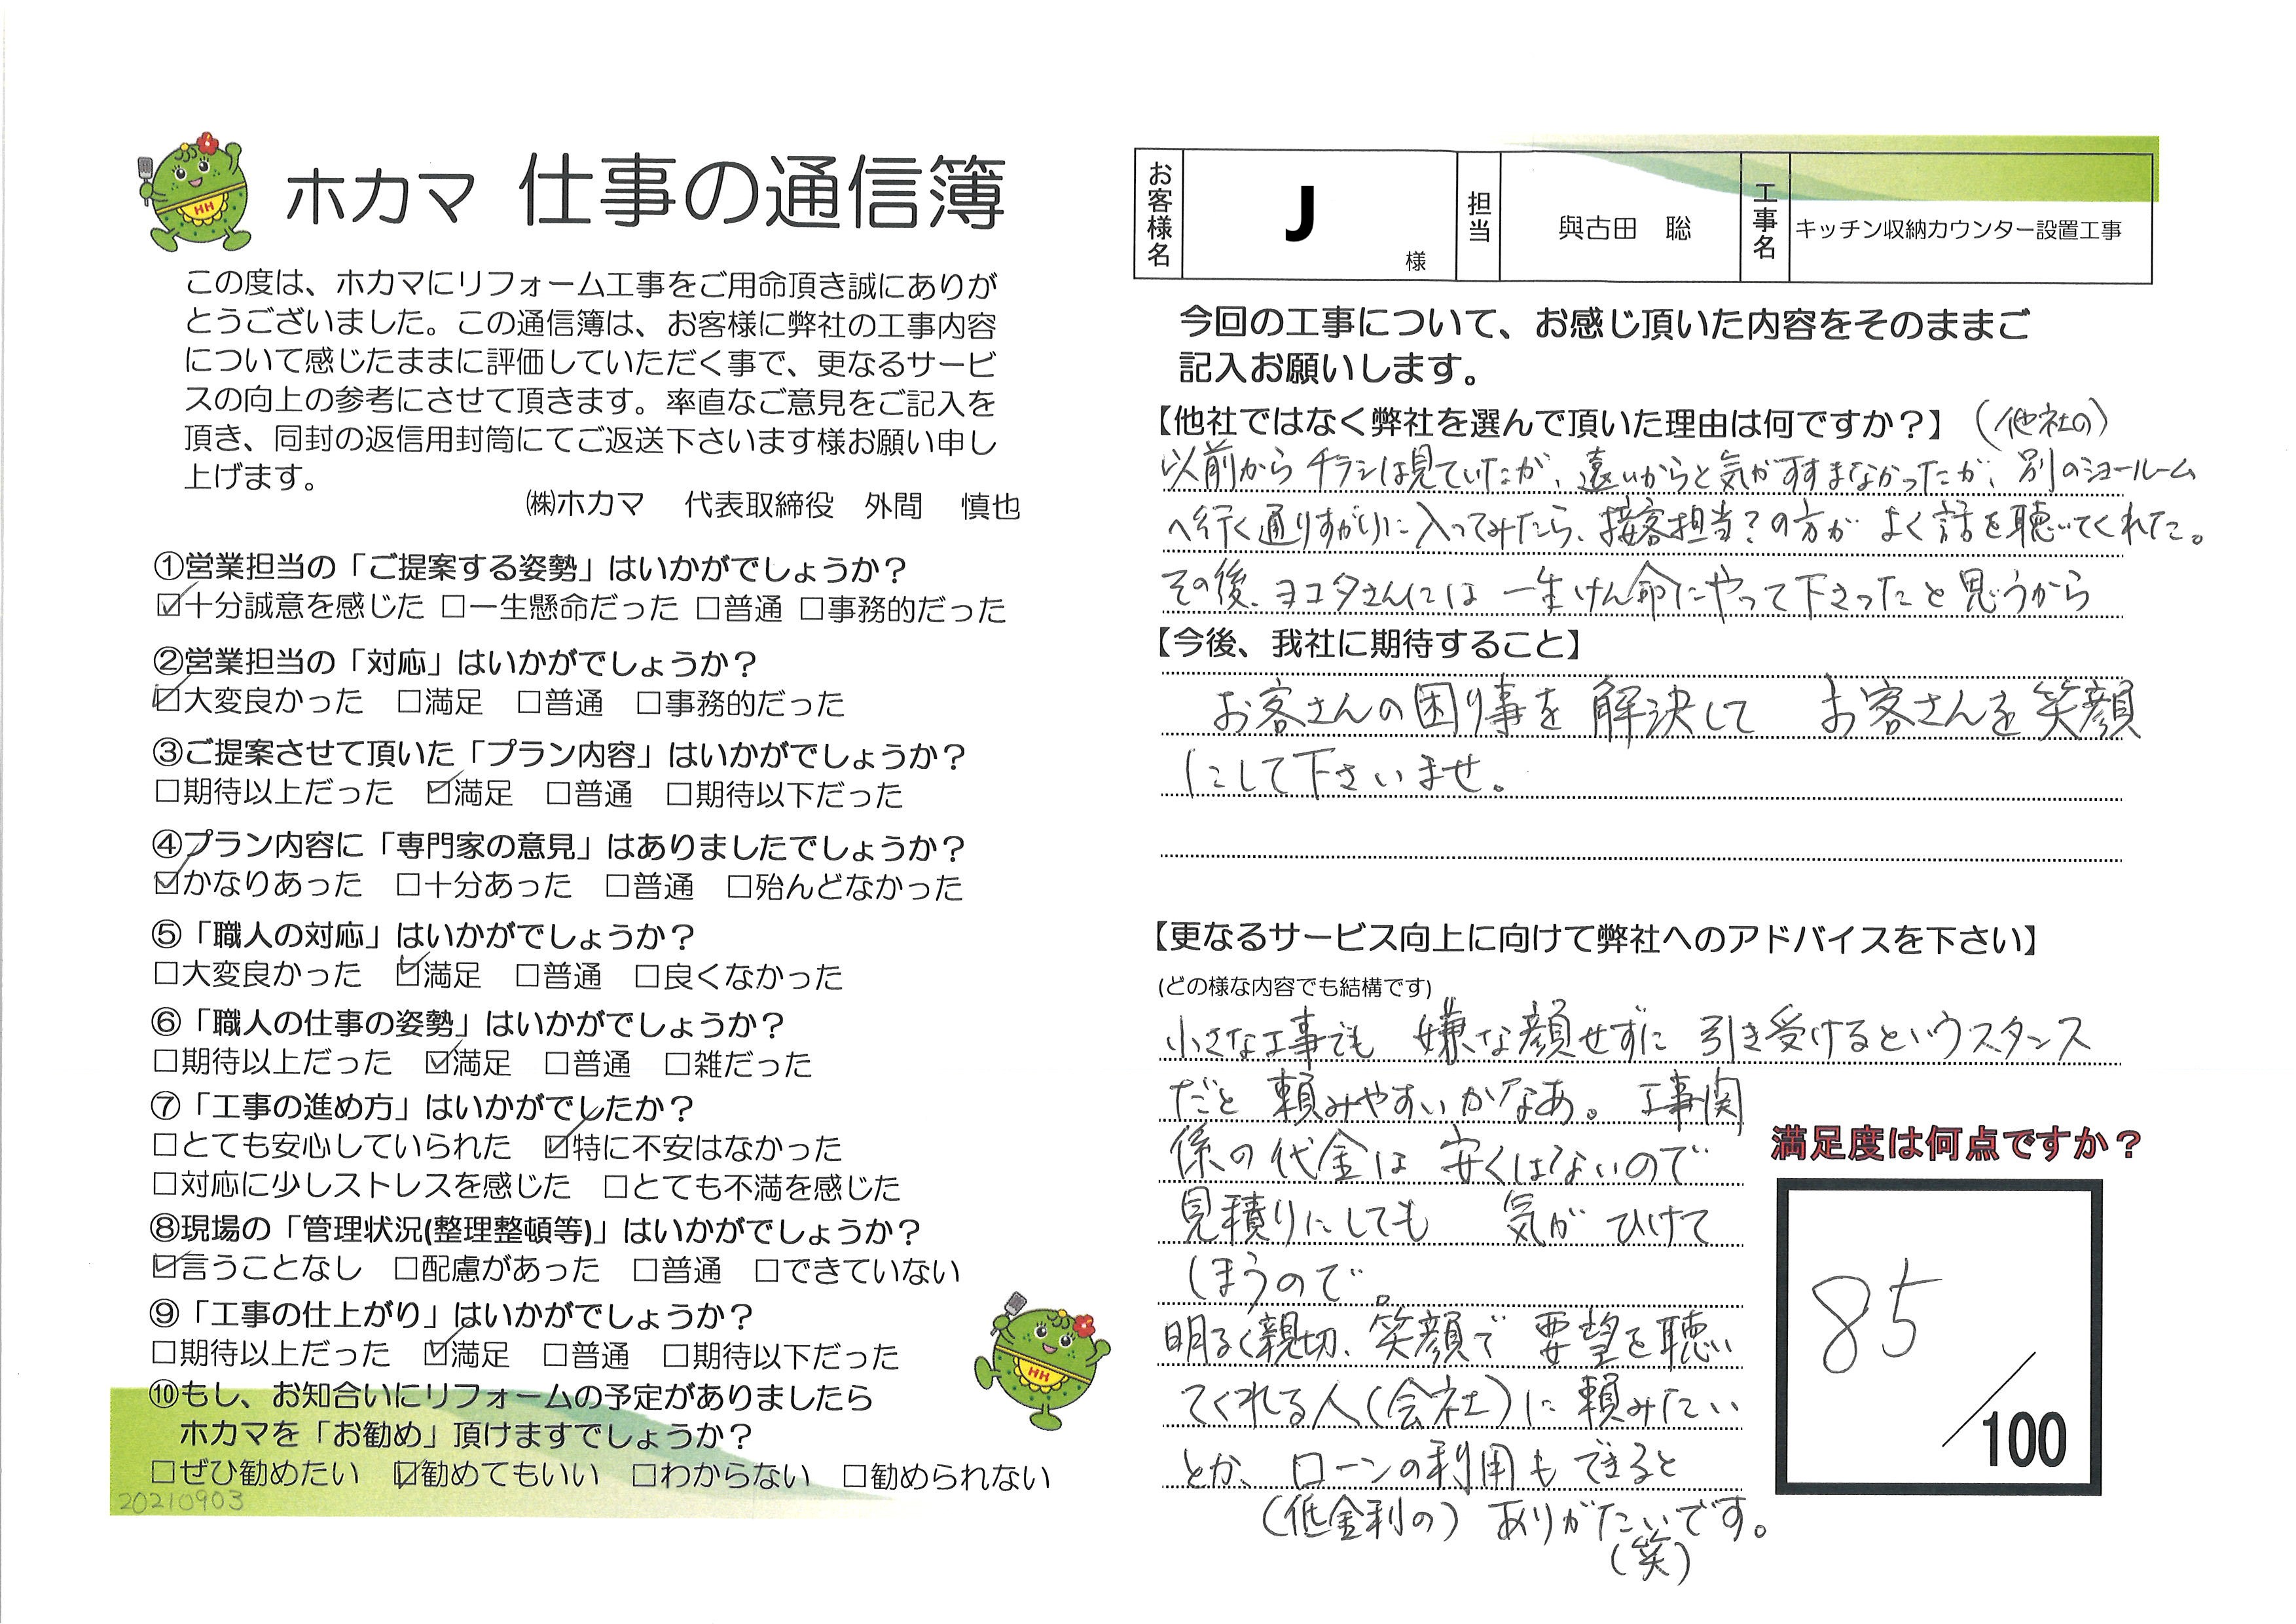 ホカマ 仕事の通信簿
この度は、ホカマにリフォーム工事をご用命頂き誠にありが
とうございました。この通信簿は、お客様に弊社の工事内容
について感じたままに評価していただく事で、更なるサービ
スの向上の参考にさせて頂きます。率直なご意見をご記入を
頂き、同封の返信用封筒にてご返送下さいます様お願い申し
上げます。
㈱ホカマ 代表取締役 外間 慎也
①営業担当の「ご提案する姿勢」はいかがでしょうか？
☑十分誠意を感じた □一生懸命だった □普通 □事務的だった
②営業担当の「対応」はいかがでしょうか？
☑大変良かった □満足 □普通 □事務的だった
③ご提案させて頂いた「プラン内容」はいかがでしょうか？
□期待以上だった ☑満足 □普通 □期待以下だった
④プラン内容に「専門家の意見」はありましたでしょうか？
☑かなりあった □十分あった □普通 □殆んどなかった
⑤「職人の対応」はいかがでしょうか？
□大変良かった ☑満足 □普通 □良くなかった
⑥「職人の仕事の姿勢」はいかがでしょうか？
□期待以上だった ☑満足 □普通 □雑だった
⑦「工事の進め方」はいかがでしたか？
□とても安心していられた ☑特に不安はなかった
□対応に少しストレスを感じた □とても不満を感じた
⑧現場の「管理状況(整理整頓等)」はいかがでしょうか？
☑言うことなし □配慮があった □普通 □できていない
⑨「工事の仕上がり」はいかがでしょうか？
□期待以上だった ☑満足 □普通 □期待以下だった
⑩もし、お知合いにリフォームの予定がありましたら
ホカマを「お勧め」頂けますでしょうか？
□ぜひ勧めたい ☑勧めてもいい □わからない □勧められない
20210903
お客様名 J 様 担当 與古田 聡 工事名 キッチン収納カウンター設置工事
今回の工事について、お感じ頂いた内容をそのままご
記入お願いします。
【他社ではなく弊社を選んで頂いた理由は何ですか？】(他社の)
以前からチラシは見ていたが、遠いからと気がすすまなかったが、別のショールーム
へ行く通りすがりに入ってみたら、接客担当？の方がよく話を聴いてくれた。
その後、ヨコタさんには一生けん命にやって下さったと思うから
【今後、我社に期待すること】
お客さんの困り事を解決して お客さんを笑顔
にして下さいませ。
【更なるサービス向上に向けて弊社へのアドバイスを下さい】
(どの様な内容でも結構です)
小さな工事でも 嫌な顔せずに 引き受けるというスタンス
だと 頼みやすいかなあ。工事関
係の代金は 安くはないので
見積りにしても 気が ひけて
しまうので。
明るく親切、笑顔で 要望を聴い
てくれる人(会社)に 頼みたい
とか、ローンの利用もできると
(低金利の) ありがたいです。
(笑)
満足度は何点ですか？
85
/100
HH
HH